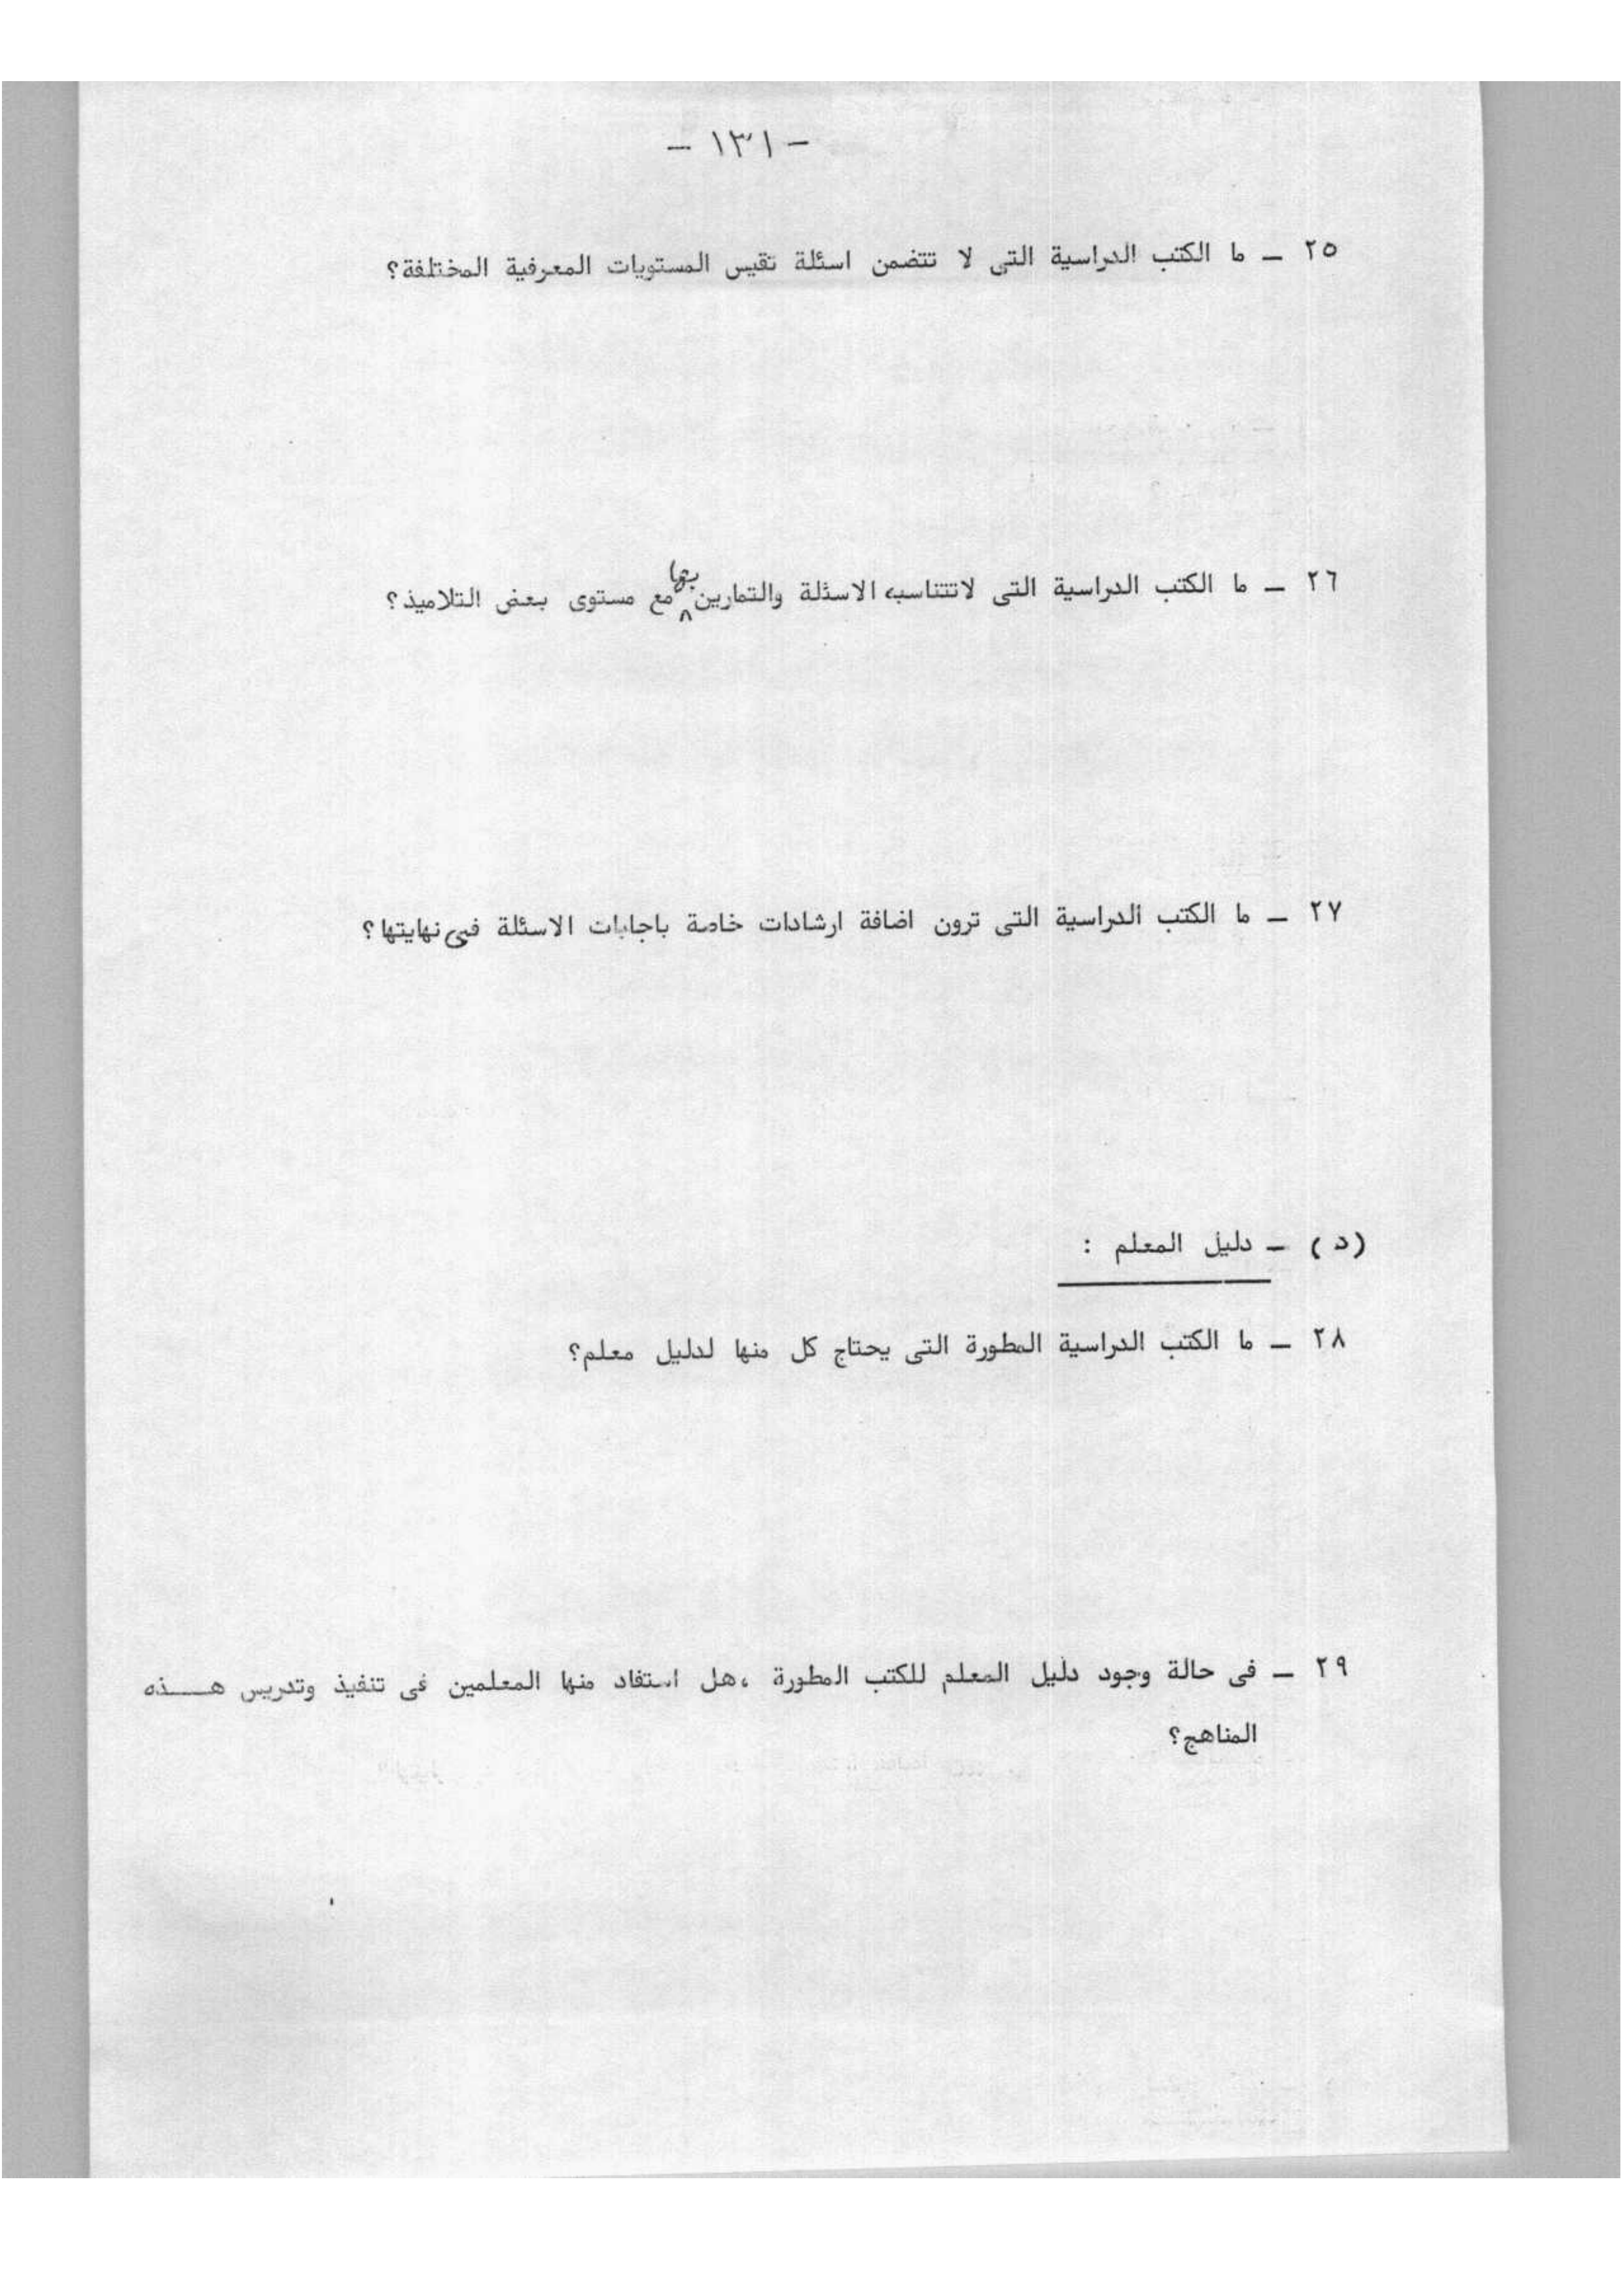 - ١٣١ -
٢٥ - ما الكتب الدراسية التى لا تتضمن اسئلة تقيس المستويات المعرفية المختلفة؟
٢٦ - ما الكتب الدراسية التى لاتتناسب الاسئلة والتمارين بها مع مستوى بعض التلاميذ؟
٢٧ - ما الكتب الدراسية التى ترون اضافة ارشادات خاصة باجابات الاسئلة فى نهايتها؟
(د) - دليل المعلم :
٢٨ - ما الكتب الدراسية المطورة التى يحتاج كل منها لدليل معلم؟
٢٩ - فى حالة وجود دليل المعلم للكتب المطورة ،هل استفاد منها المعلمين فى تنفيذ وتدريس هـــذه
المناهج؟